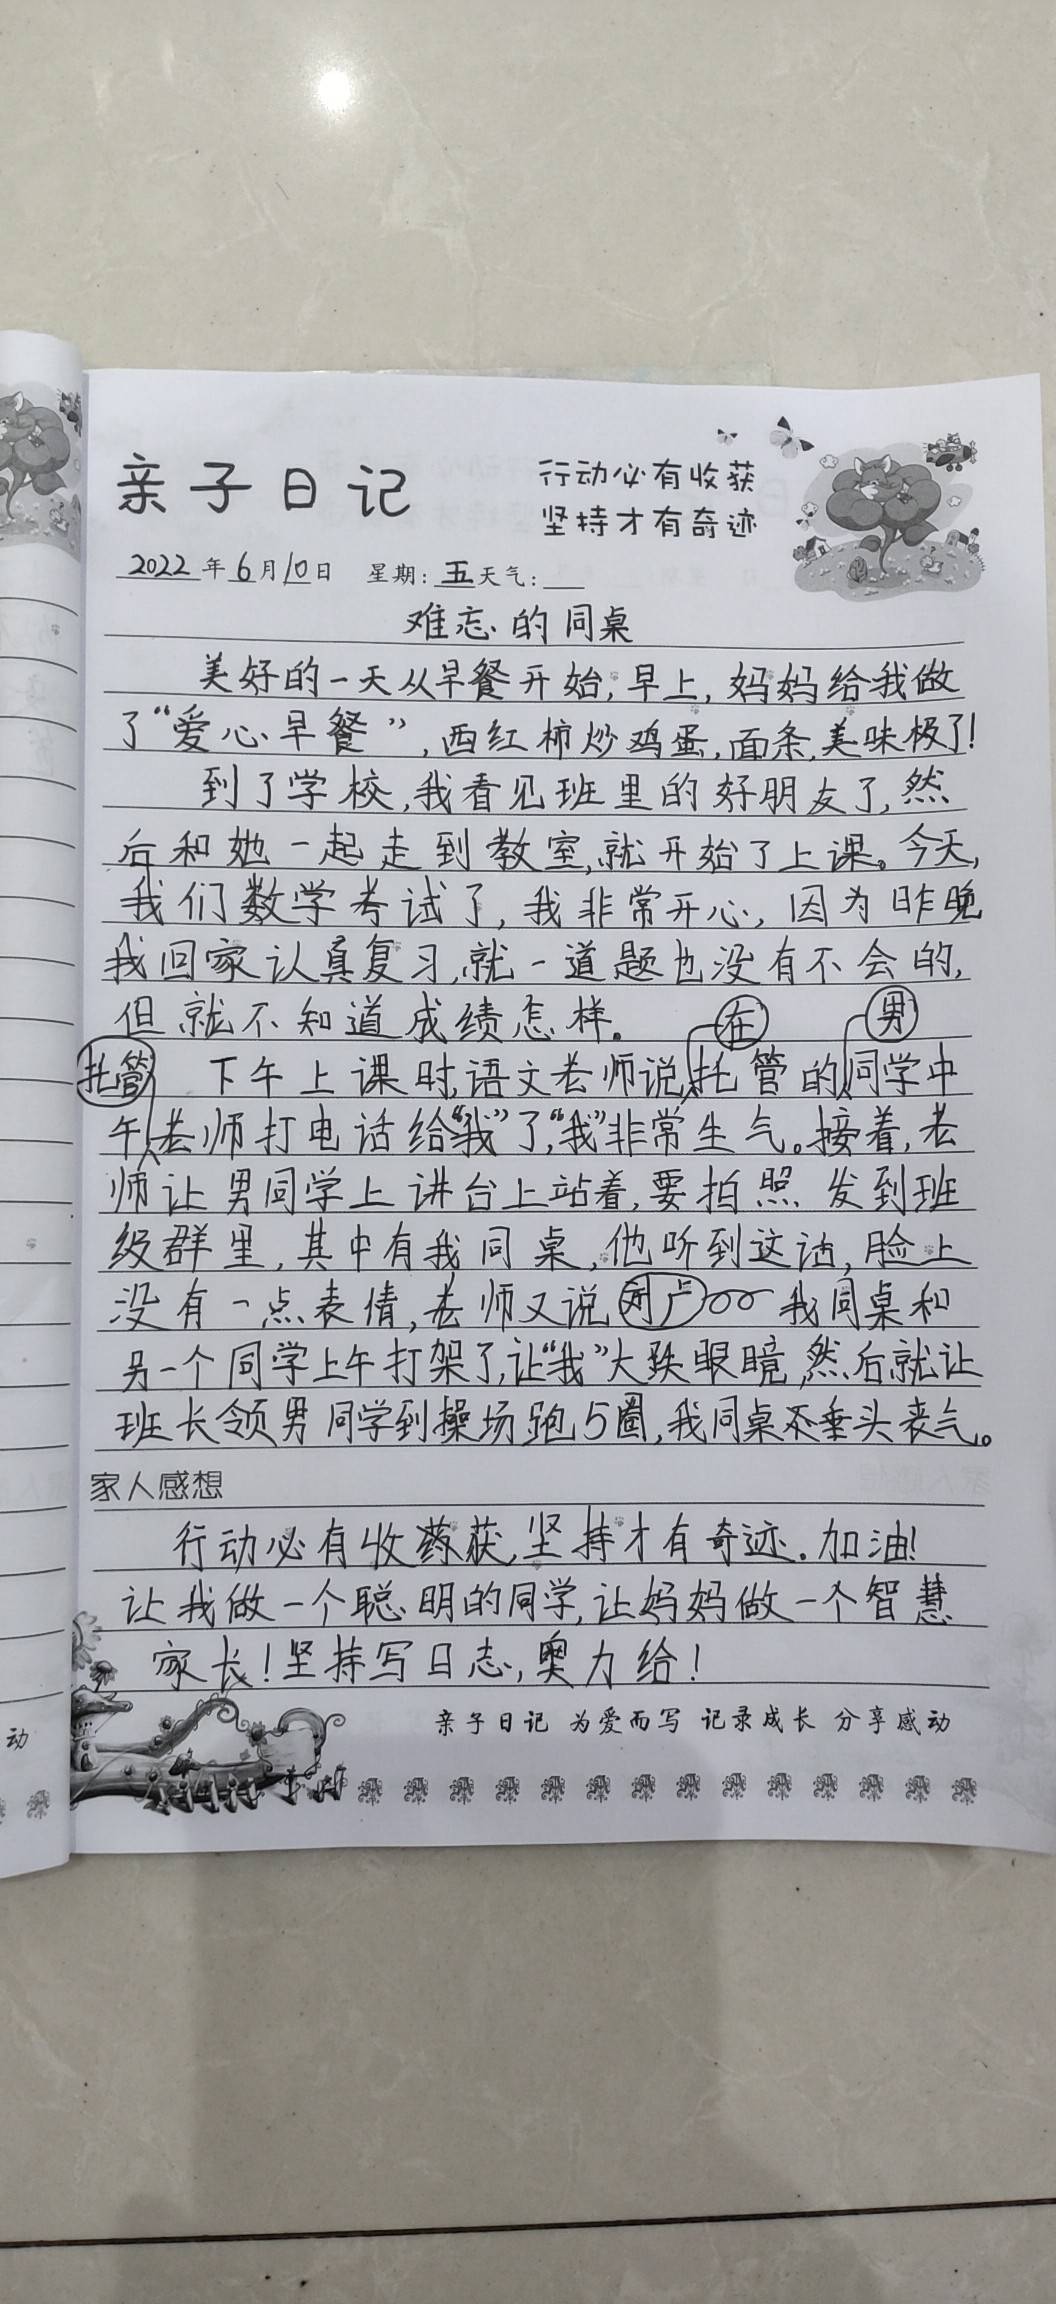 亲子日记
行动必有收获
坚持才有奇迹
2022年6月10日 星期:五天气:
难忘的同桌
美好的一天从早餐开始,早上,妈妈给我做
了“爱心早餐”,西红柿炒鸡蛋,面条,美味极了!
到了学校,我看见班里的好朋友了,然
后和她一起走到教室,就开始了上课。今天,
我们数学考试了,我非常开心,因为昨晚
我回家认真复习,就一道题也没有不会的,
但就不知道成绩怎样。
在 男
托管 下午上课时,语文老师说,托管的同学中
午老师打电话给“我”了,“我”非常生气。接着,老
师让男同学上讲台上站着,要拍照发到班
级群里,其中有我同桌,他听到这话,脸上
没有一点表情,老师又说 我同桌和
另一个同学上午打架了,让“我”大跌眼睛,然后就让
班长领男同学到操场跑5圈,我同桌还垂头丧气。
家人感想
行动必有收获,坚持才有奇迹。加油!
让我做一个聪明的同学,让妈妈做一个智慧
家长!坚持写日志,奥力给!
亲子日记 为爱而写 记录成长 分享感动
动